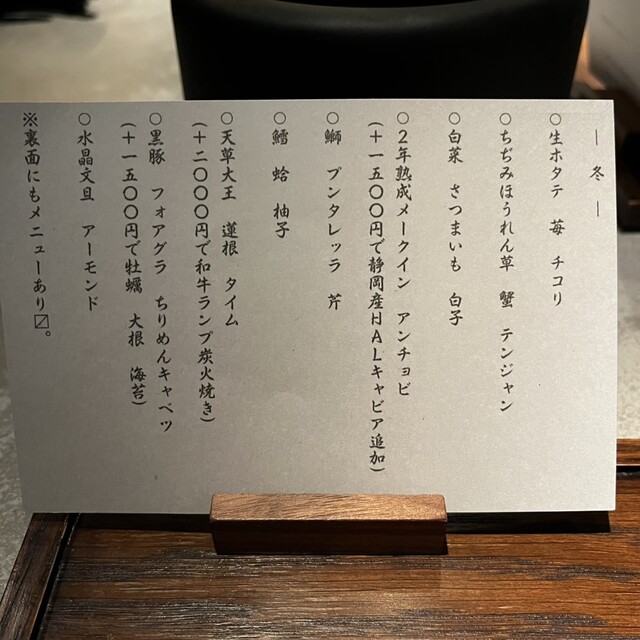 — 冬 —
○生ホタテ 苺 チコリ
○ちぢみほうれん草 蟹 テンジャン
○白菜 さつまいも 白子
○2年熟成メークイン アンチョビ
(+一五〇〇円で静岡産HALキャビア追加)
○鰤 プンタレッラ 芹
○鱈 蛤 柚子
○天草大王 蓮根 タイム
(+二〇〇〇円で和牛ランプ炭火焼き)
○黒豚 フォアグラ ちりめんキャベツ
(+一五〇〇円で牡蠣 大根 海苔)
○水晶文旦 アーモンド
※裏面にもメニューあり〼。